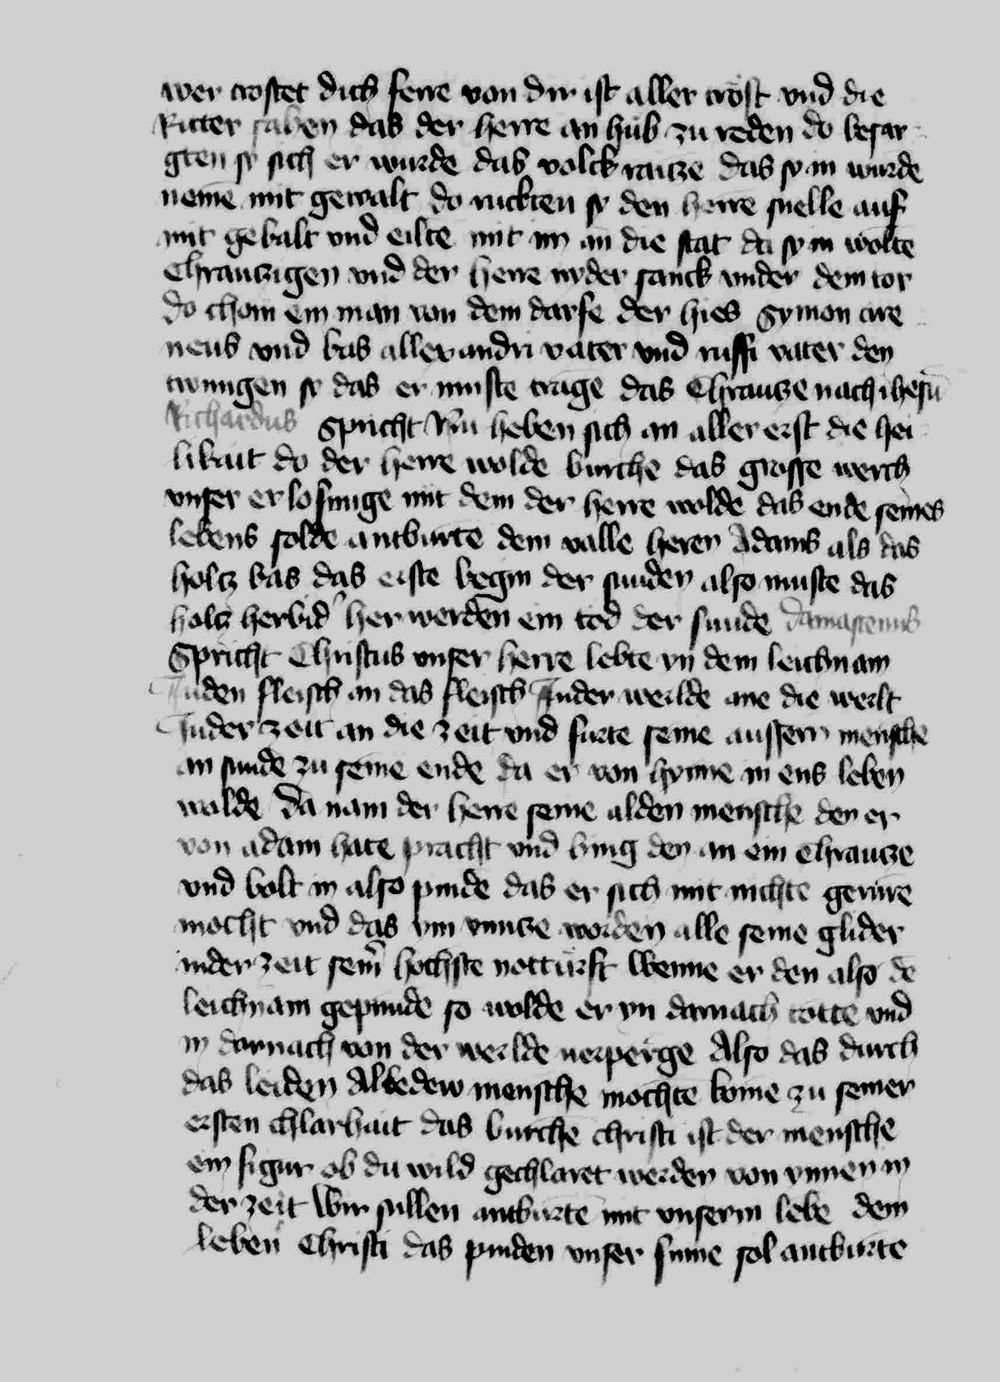 wer trostet dich ferre von dir ist aller trost vnd die
Ritter sahen das der herre an hub zu reden do besar
gten sy sich er wurde das volck raitze das sy in wurde
neme mit gewalt do ruckten sy den herre snelle auf
mit gebalt vnd eilte mit im an die stat da sy in wolte
Chrauczigen vnd der herre nyder sanck vnder dem tor
do chom ein man von dem darfe der hies Symon cire
neus vnd bas allexandri vater vnd ruffi vater den
twungen sy das er muste trage das Chrautze nach ihesu
Richardus spricht Nu heben sich an aller erst die hei
likait do der herre wolde burche das grosse werch
vnser erlosunge mit dem der herre wolde das ende seines
lebens solde antburte dem valle heren Adams als das
holtz bas das erste begin der sunden also muste das
holtz herbid her werden ein tod der sunde damascenus
Spricht Christus vnser herre lebte yn dem leichnam
Inden fleisch an das fleisch Inder werlde ane die werlt
Inder zeit an die zeit vnd furte seine aussern mensche
an sunde zu seine ende da er von hynne in ens leben
wolde Da nam der herre seine alden mensche den er
von adam hate pracht vnd hing den an ein chrautze
vnd bolt in also pinde das er sich mit nichte gerure
mocht vnd das ym vnutze worden alle seine glider
inder zeit seiner hochste notturft Wenne er den also de
leichnam gepunde so wolde er yn darnach totte vnd
in dornach von der werlde verperge Also das durch
das leiden Alledew mensche mochte kome zu seiner
ersten chlarhait das burche christi ist der mensche
ein figur ob du wild gechlaret werden von ynnen in
der zeit Wir sullen antburte mit vnserm lebe dem
leben Christi das pinden vnser sinne sol antburte